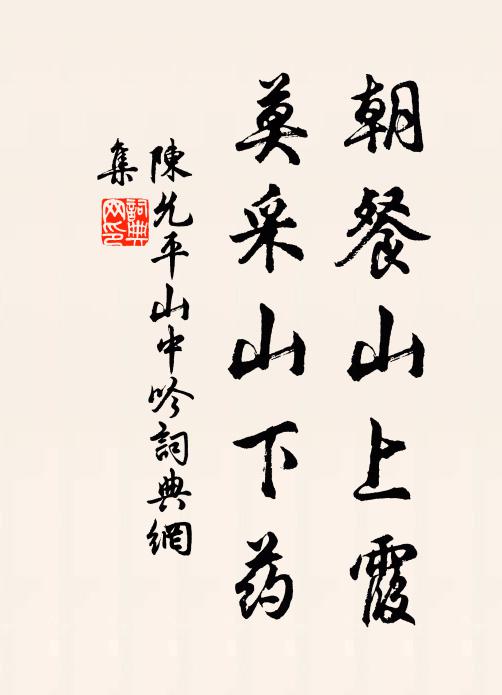 朝餐山上霞
莫采山下药
陳允平山中吟詞典網
集
詞典
网印